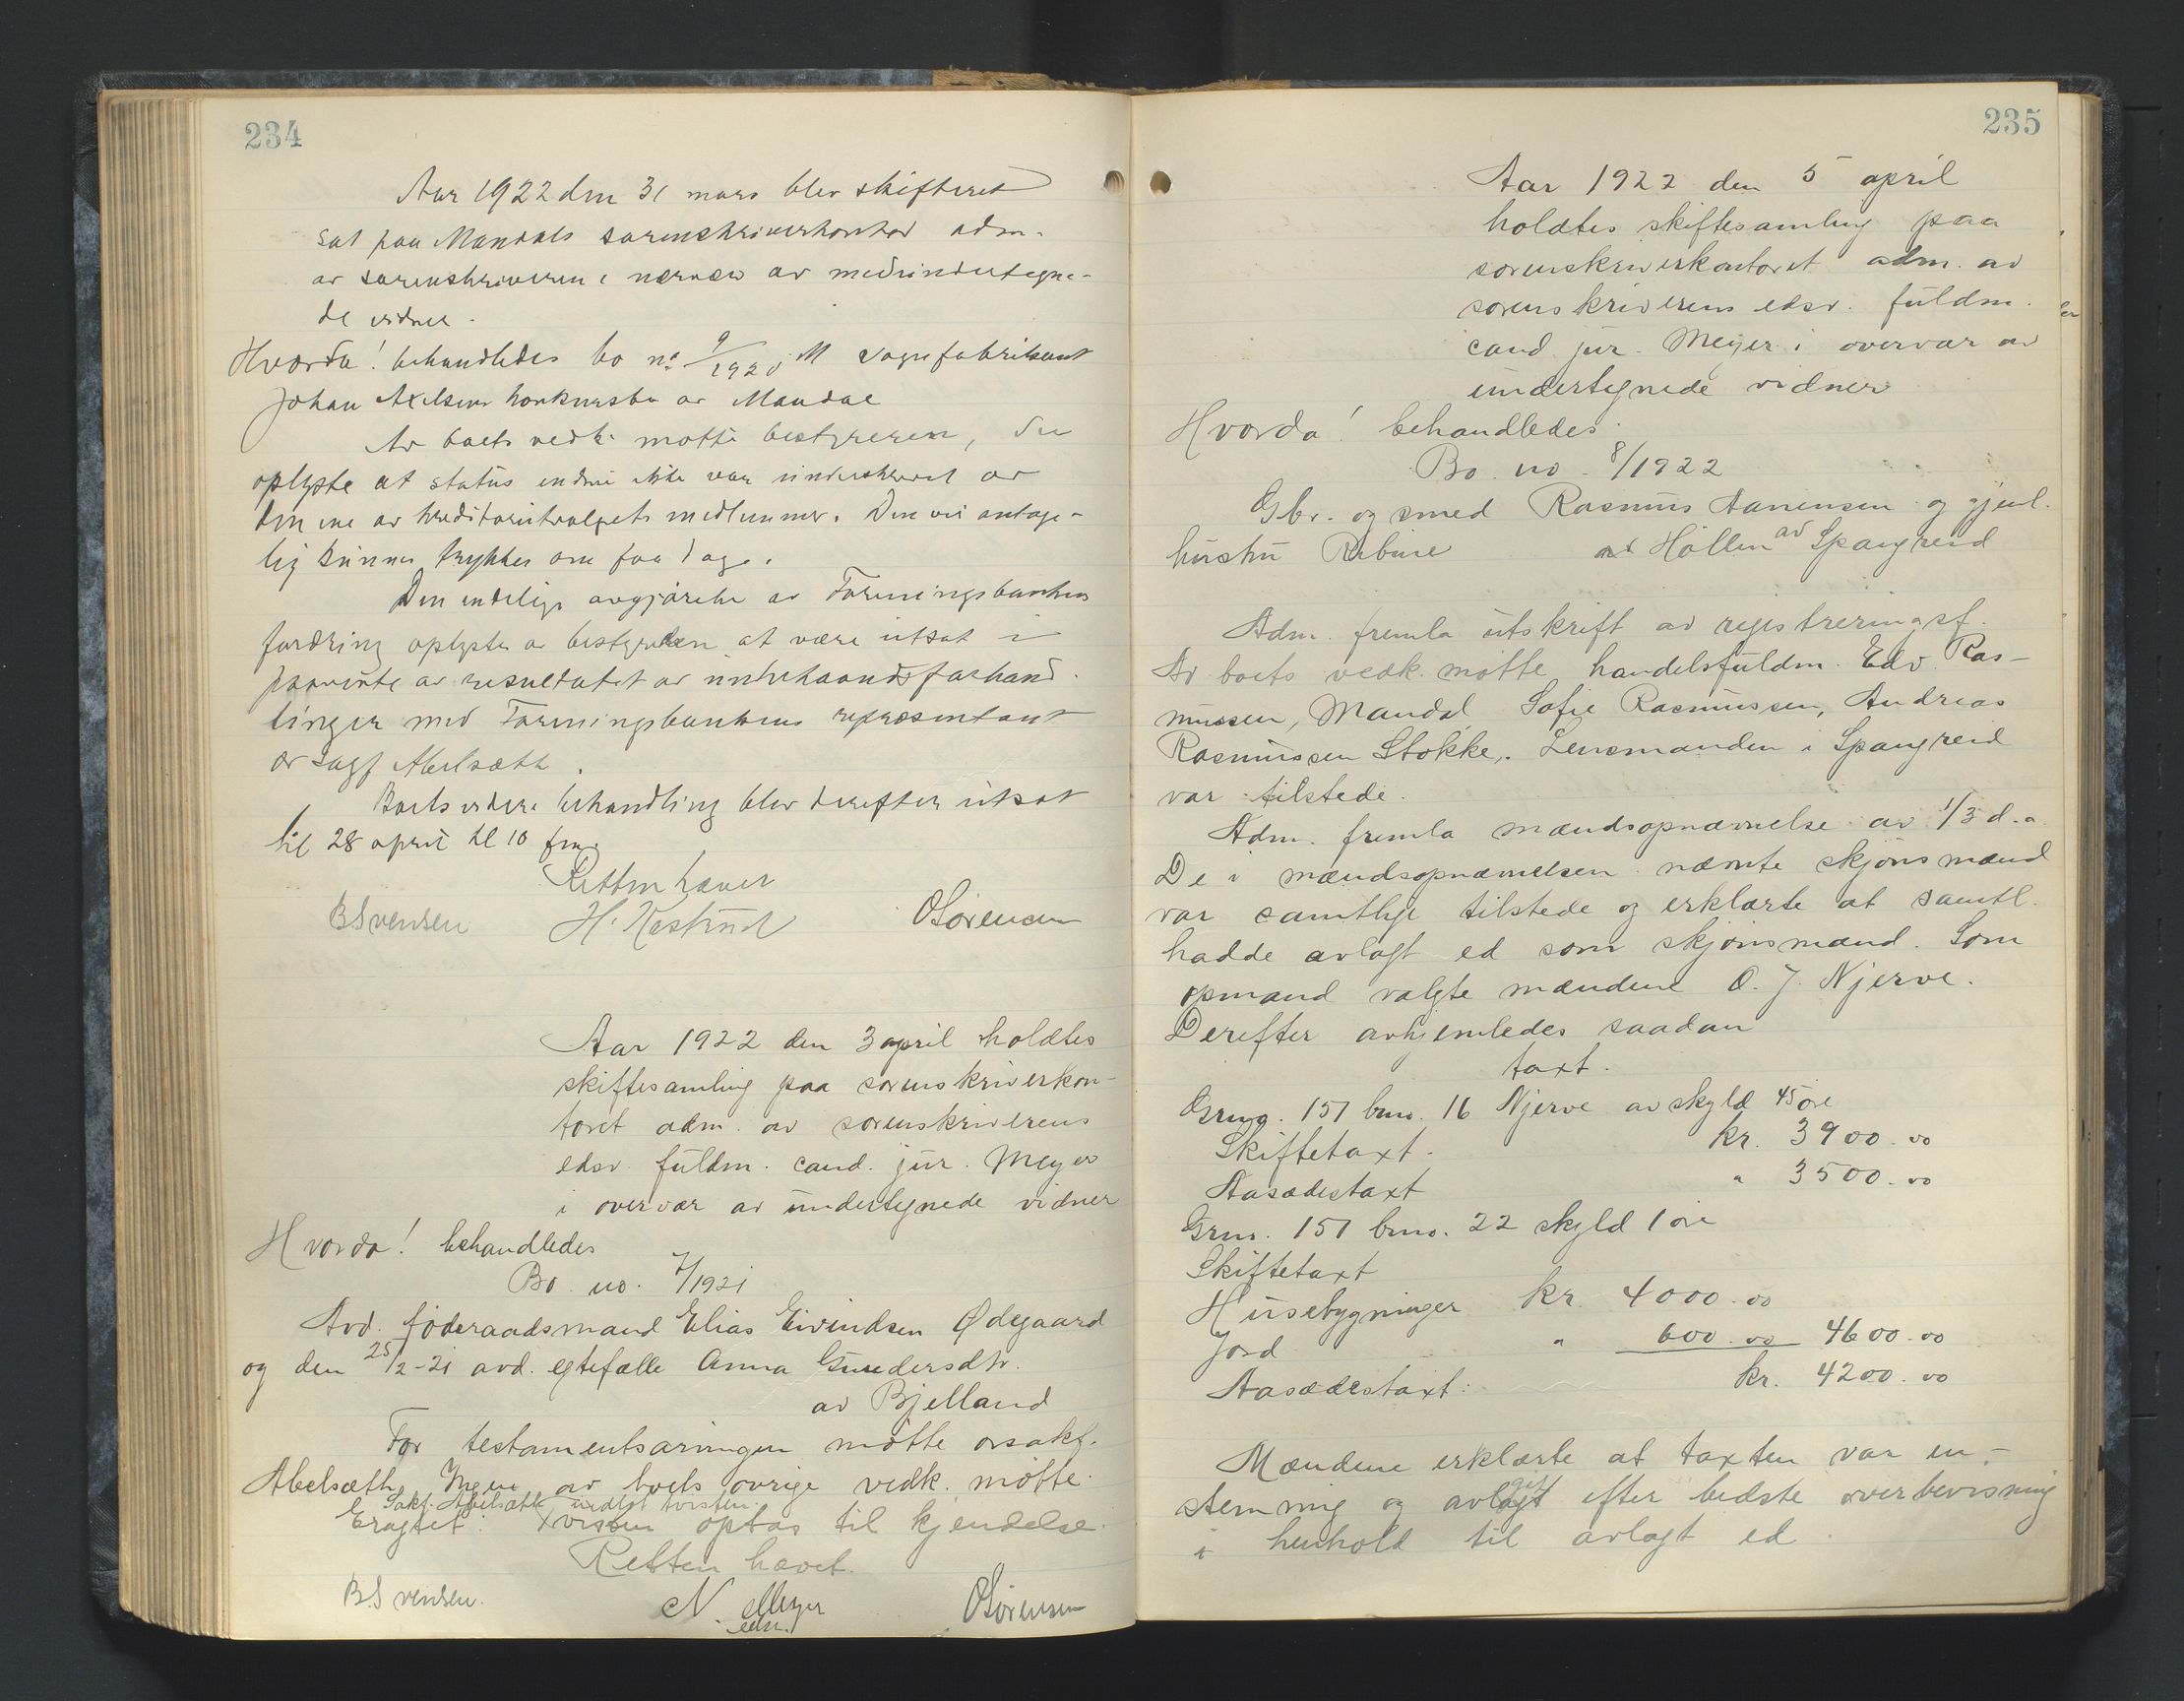 234
Aar 1922 den 31 mars blev skifteret
sat paa Mandals sorenskriverkontor adm.
av sorenskriveren i nærvær av medundertegne-
de vidner.
Hvorda! behandledes bo no 9/1920 M vognfabrikant
Johan Axelsens konkursbo av Mandal
Av boets vedk. møtte bestyreren, der
oplyste at status endnu ikke var underskrevet av
den ene av kreditorutvalgets medlemmer. Den vil antage-
lig kunne trykkes om faa dage.
Den endelige avgjørelse av Foreningsbankens
fordring oplystes av bestyreren at være utsat i
paavente av resultatet av underhaandsforhand-
linger med Foreningsbankens repræsentant
or sagf Abelsæth.
Boets videre behandling blev derefter utsat
til 28 april kl 10 fm.
Retten hævet
B. Svensen H. O Sørensen
Aar 1922 den 3 april holdtes
skiftesamling paa sorenskriverkon-
toret adm. av sorenskriverens
edsv. fuldm. cand. jur. Meyer
i overvær av undertegnede vidner
Hvorda! behandledes
Bo. no. 7/1921
Avd. føderaadsmand Elias Eivindsen Ødegaard
og den 25/2-21 avd. egtefælle Anna Gundersdtr.
av Bjelland
For testamentsarvingen møtte orsakf.
Abelsæth. Ingen av boets øvrige vedk. møtte.
Sakf. Abelsæth indlot tvisten.
Eragtet: Tvisten optas til kjendelse.
Retten hævet.
B. Svensen. N. Meyer O Sørensen
edsv.
235
Aar 1922 den 5 april
holdtes skiftesamling paa
sorenskriverkontoret adm. av
sorenskriverens edsv. fuldm.
cand. jur. Meyer i overvær av
undertegnede vidner
Hvorda! behandledes
Bo. no. 8/1922
Gbr. og smed Rasmus Aanensen og gjenl.
hustru Rebine av Hollen av Spangreid
Adm. fremla utskrift av registreringsf.
Av boets vedk. møtte handelsfuldm. Edv. Ras-
mussen, Mandal, Sofie Rasmussen, Andreas
Rasmussen Stokke,. Lensmanden i Spangreid
var tilstede.
Adm. fremla mændsopnævnelse av 1/3 d.a
De i mændsopnævnelsen nævnte skjønsmænd
var samtlige tilstede og erklærte at samtl.
hadde avlagt ed som skjønsmænd. Som
opmand valgte mændene O. J. Njerve.
Derefter avhjemledes saadan
taxt.
Grno. 151 brno. 16 Njerve av skyld 45 øre
Skiftetaxt. kr. 3900.00
Aasædestaxt " 3500.00
Grno. 151 brno. 22 skyld 1 øre
Skiftetaxt
Husebygninger kr. 4000.00
Jord " 600.00 4600.00
Aasædestaxt: kr. 4200.00
Mændene erklærte at taxten var en-
stemmig og avgit efter bedste overbevisning
i henhold til avlagt ed.